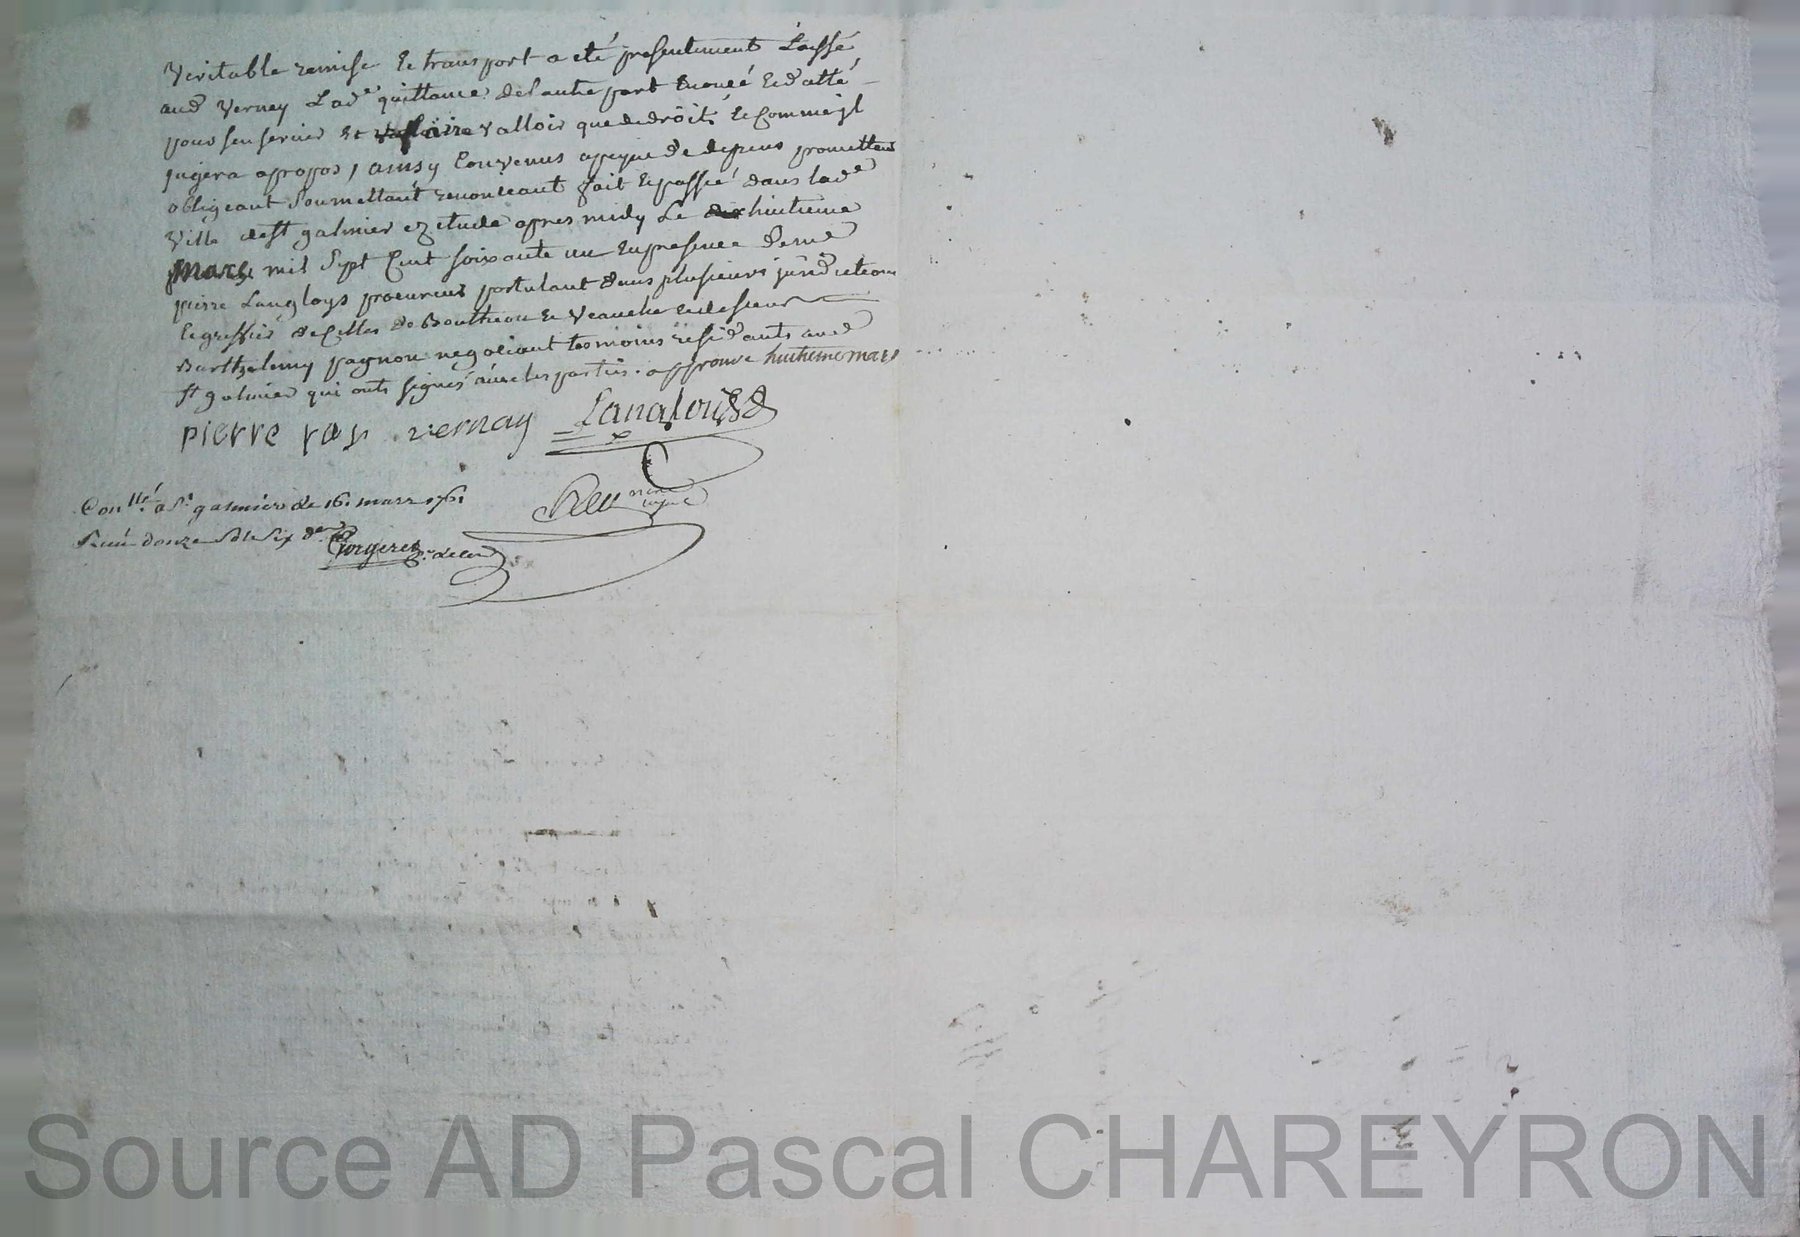 veritable remise Et transport a eté presentement Laissé
aud Verney Lad.e quittance de Lautre part Enoncé Et datté
pour sen servir Et valloir que de droit Et Comme jl
jugera apropos, ainsy Convenus apeyne de depens promettant
obligeant Soumettant renonceant fait Et passé dans lad.e
Ville de St galmier Etude apres midy Le huitieme
mars mil Sept Cent soixante un En presence de me
pierre Langloys procureur postulant dans plusieurs juridictions
Et greffier de Celles de Boutheon Et Veauche Et de sieur
Barthelemy pagnon negotiant temoins residants aud
St galmier qui onts signés avec les parties. approuvé huitieme mars
pierre ray vernay Langlois
Con.llé a St galmier Le 16. mars 1761
Recu douze sols six den